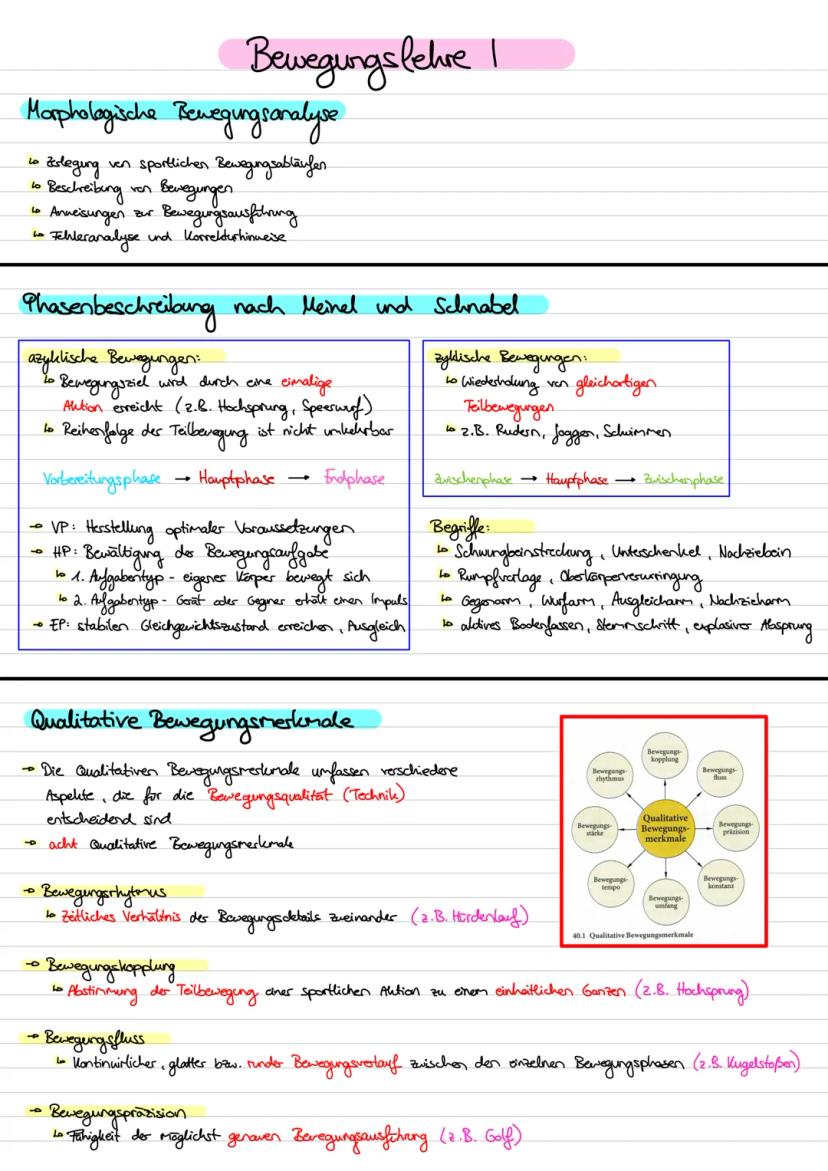 Bewegungslehre 1
Morphologische Bewegungsanalyse
↳ Zerlegung von sportlichen Bewegungsabläufen
↳ Beschreibung von Bewegungen
↳ Anweisungen zur Bewegungsausführung
↳ Fehleranalyse und Korrekturhinweise
Phasenbeschreibung nach Meinel und Schnabel
azyklische Bewegungen:
↳ Bewegungsziel wird durch eine eimalige
Aktion erreicht (z.B. Hochsprung, Speerwurf)
↳ Reihenfolge der Teilbewegung ist nicht umkehrbar
Vorbereitungsphase → Hauptphase → Endphase
→ VP: Herstellung optimaler Voraussetzungen
→ HP: Bewältigung der Bewegungsaufgabe
↳ 1. Aufgabentyp - eigener Körper bewegt sich
↳ 2. Aufgabentyp - Gerät oder Gegner erhält einen Impuls
→ EP: stabilen Gleichgewichtszustand erreichen, Ausgleich
zyklische Bewegungen:
↳ Wiederholung von gleichartigen
Teilbewegungen
↳ z.B. Rudern, Joggen, Schwimmen
Zwischenphase → Hauptphase → Zwischenphase
Begriffe:
↳ Schwungbeinstreckung, Unterschenkel, Nachziebein
↳ Rumpfvorlage, Oberkörperverwringung
↳ Gegenarm, Wurfarm, Ausgleicharm, Nachzieharm
↳ aktives Bodenfassen, Stemmschritt, explosiver Absprung
Qualitative Bewegungsmerkmale
→ Die Qualitativen Bewegungsmerkmale umfassen verschiedene
Aspekte, die für die Bewegungsqualität (Technik)
entscheidend sind
→ acht Qualitative Bewegungsmerkmale
Bewegungs-
kopplung
Bewegungs-
rhythmus
Bewegungs-
fluss
Bewegungs-
stärke
Qualitative
Bewegungs-
merkmale
Bewegungs-
präzision
Bewegungs-
tempo
Bewegungs-
konstanz
Bewegungs-
umfang
40.1 Qualitative Bewegungsmerkmale
→ Bewegungsrhytmus
↳ Zeitliches Verhältnis der Bewegungsdetails zueinander (z.B. Hürdenlauf)
→ Bewegungskopplung
↳ Abstimmung der Teilbewegung einer sportlichen Aktion zu einem einheitlichen Ganzen (z.B. Hochsprung)
→ Bewegungsfluss
↳ Kontinuirlicher, glatter bzw. runder Bewegungsverlauf zwischen den einzelnen Bewegungsphasen (z.B. Kugelstoßen)
→ Bewegungspräzision
↳ Fähigkeit der möglichst genauen Bewegungsausführung (z.B. Golf)